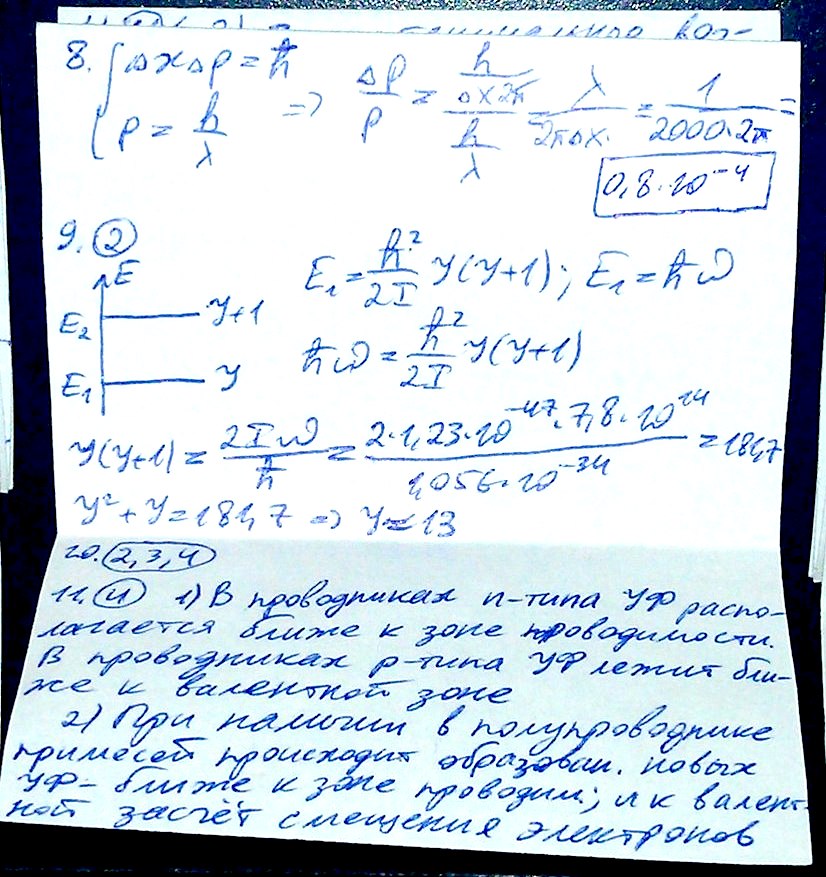 8. { Δx Δp = ħ
p = h/λ => Δp/p = (h/(Δx 2π))/(h/λ) = λ/(2πΔx) = 1/(2000·2π) =
0,8·10⁻⁴
9. (2)
E
E₂ y+1
E₁ y
E₁ = ħ²/2I y(y+1); E₁ = ħω
ħω = ħ²/2I y(y+1)
y(y+1) = 2Iω/ħ = 2·1,23·10⁻⁴⁷·7,8·10¹⁴/1,056·10⁻³⁴ = 181,7
y² + y = 181,7 => y = 13
10. (2,3,4)
11. (4) 1) В проводниках n-типа УФ распо-
лагается ближе к зоне проводимости.
В проводниках p-типа УФ лежит бли-
же к валентной зоне
2) При наличии в полупроводнике
примесей происходит образован. новых
УФ - ближе к зоне проводим.; и к валент-
ной засчёт смещения электронов